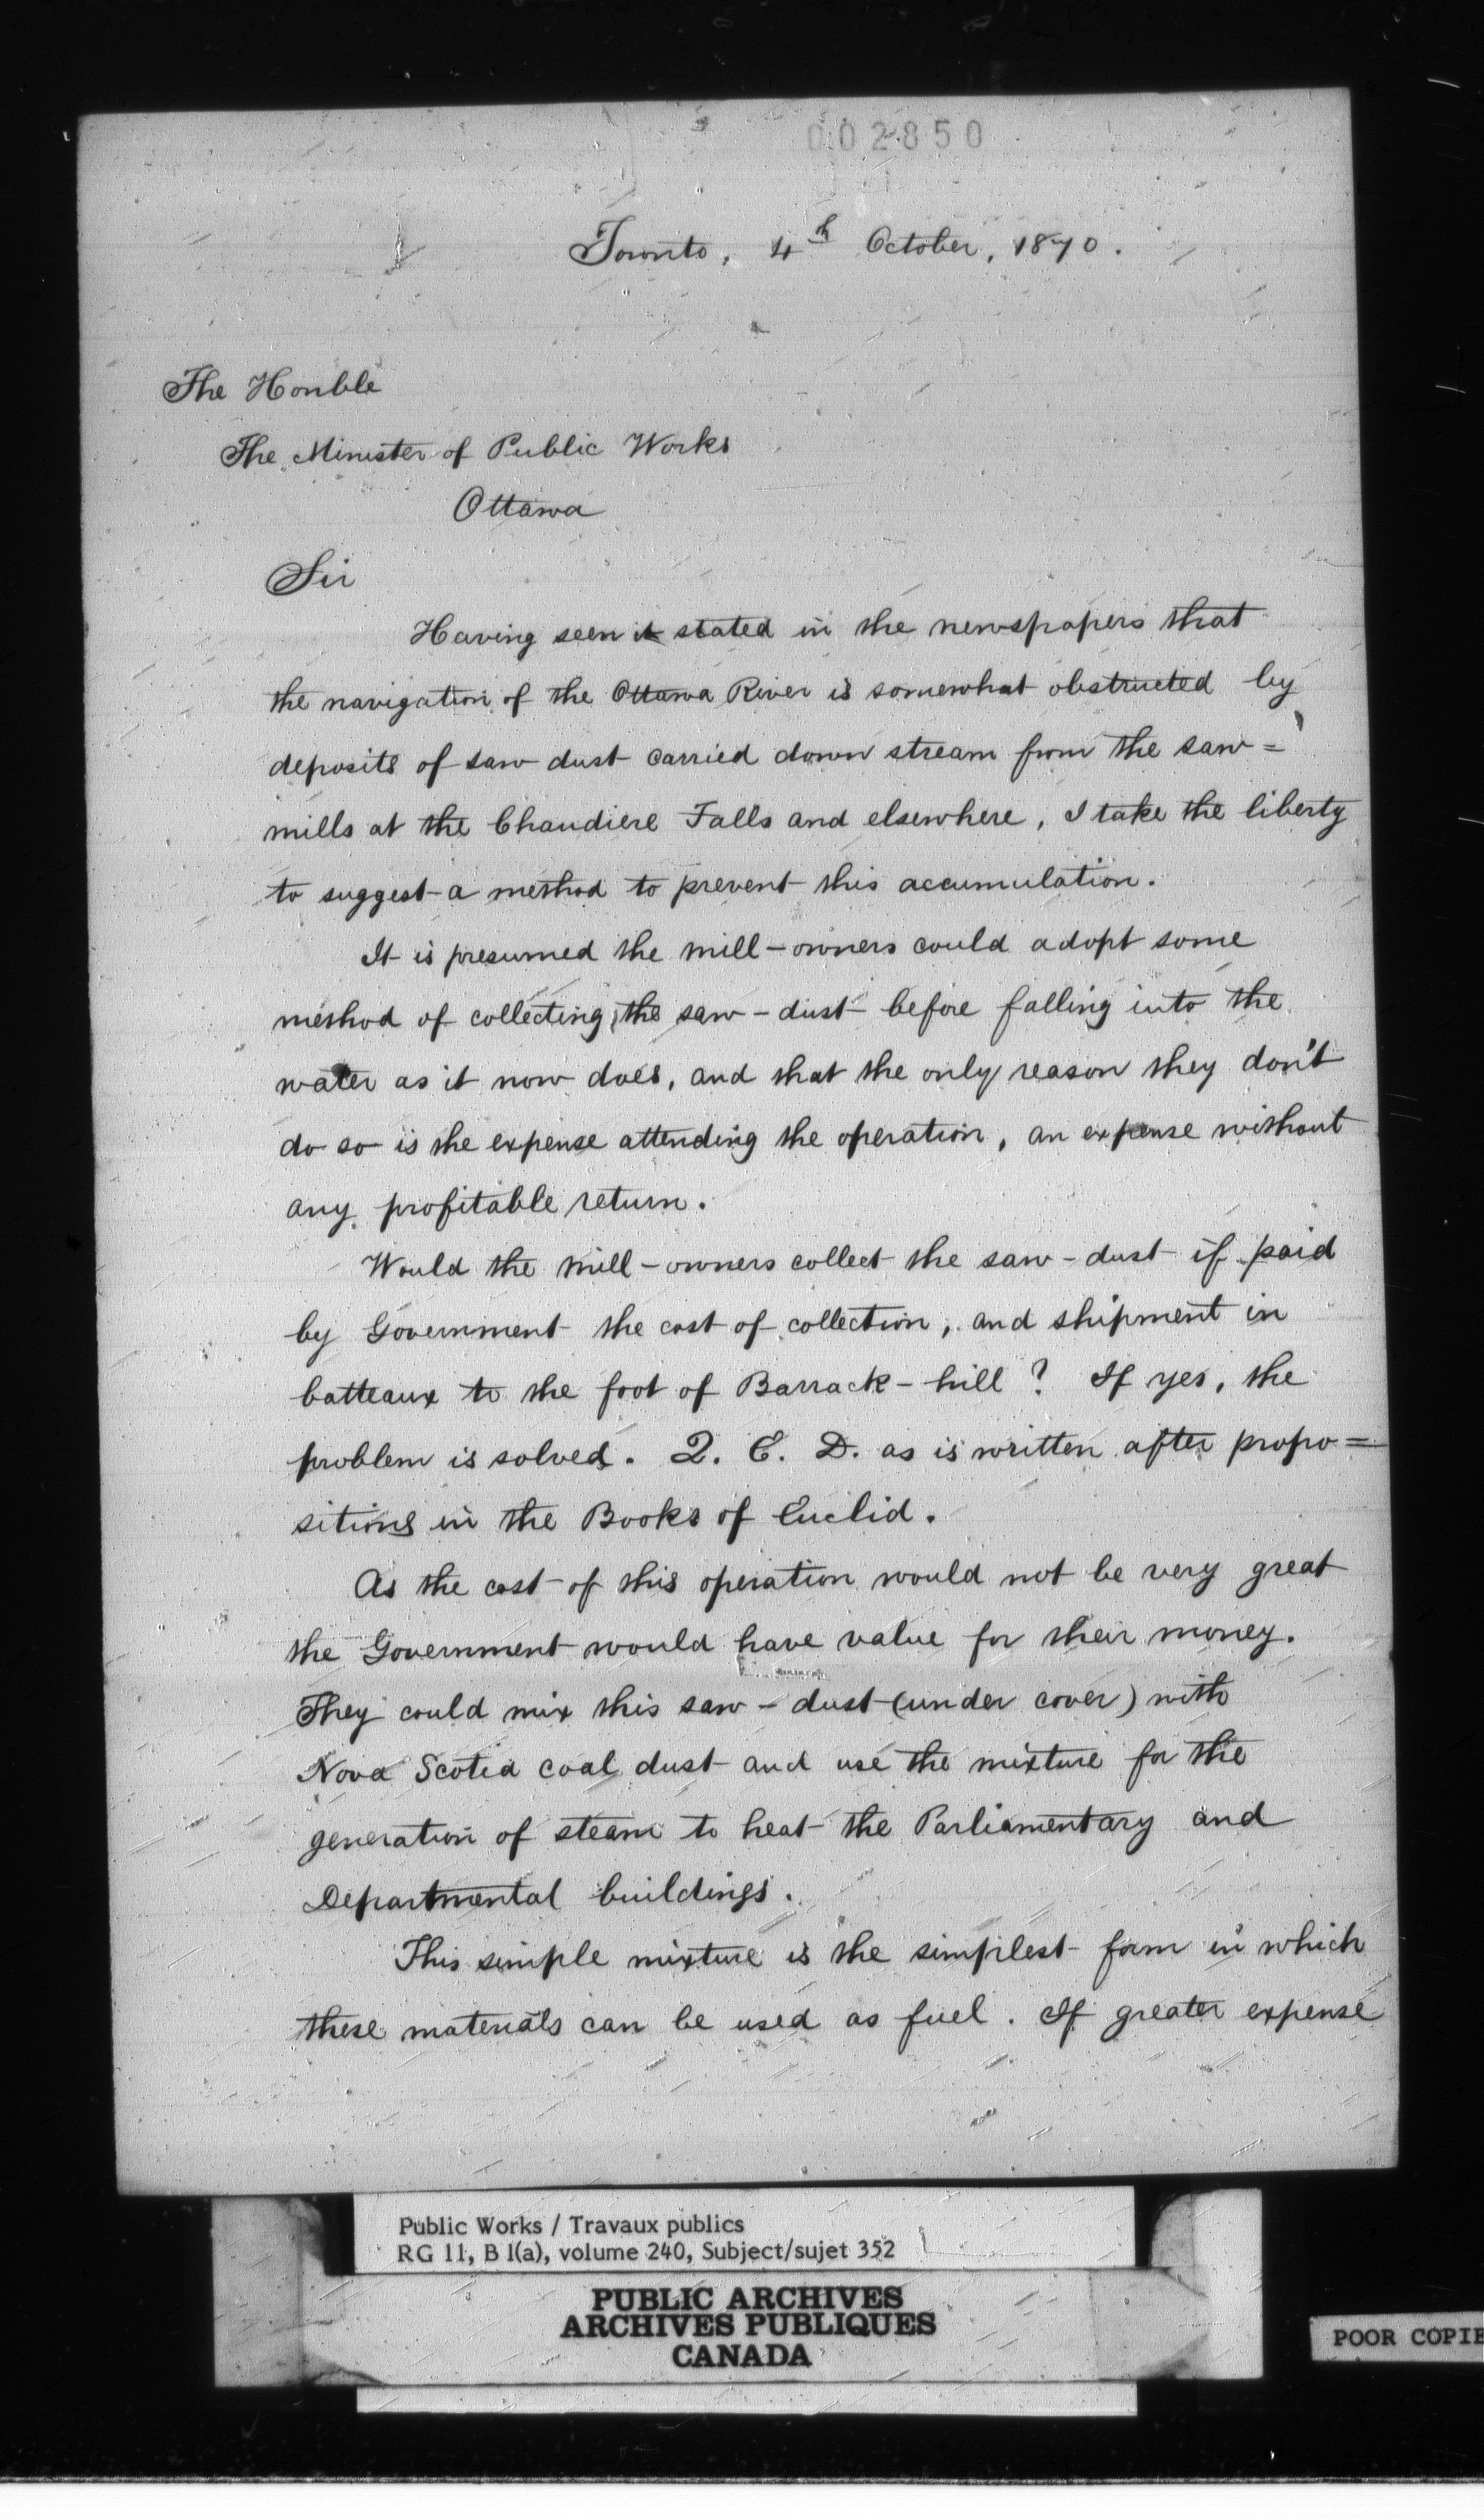 002850
Toronto, 4th October, 1870.
The Honble
The Minister of Public Works
Ottawa
Sir
Having seen it stated in the newspapers that
the navigation of the Ottawa River is somewhat obstructed by
deposits of saw dust carried down stream from the saw=
mills at the Chaudiere Falls and elsewhere, I take the liberty
to suggest a method to prevent this accumulation.
It is presumed the mill-owners could adopt some
method of collecting the saw-dust before falling into the
water as it now does, and that the only reason they don't
do so is the expense attending the operation, an expense without
any profitable return.
Would the mill-owners collect the saw-dust if paid
by Government the cost of collection, and shipment in
batteaux to the foot of Barrack-hill? If yes, the
problem is solved. Q. E. D. as is written after propo=
sitions in the Books of Euclid.
As the cost of this operation would not be very great
the Government would have value for their money.
They could mix this saw-dust (under cover) with
Nova Scotia coal dust and use the mixture for the
generation of steam to heat the Parliamentary and
Departmental buildings.
This simple mixture is the simplest form in which
these materials can be used as fuel. If greater expense
Public Works / Travaux publics
RG 11, B 1(a), volume 240, Subject/sujet 352
PUBLIC ARCHIVES
ARCHIVES PUBLIQUES
CANADA
POOR COPIE